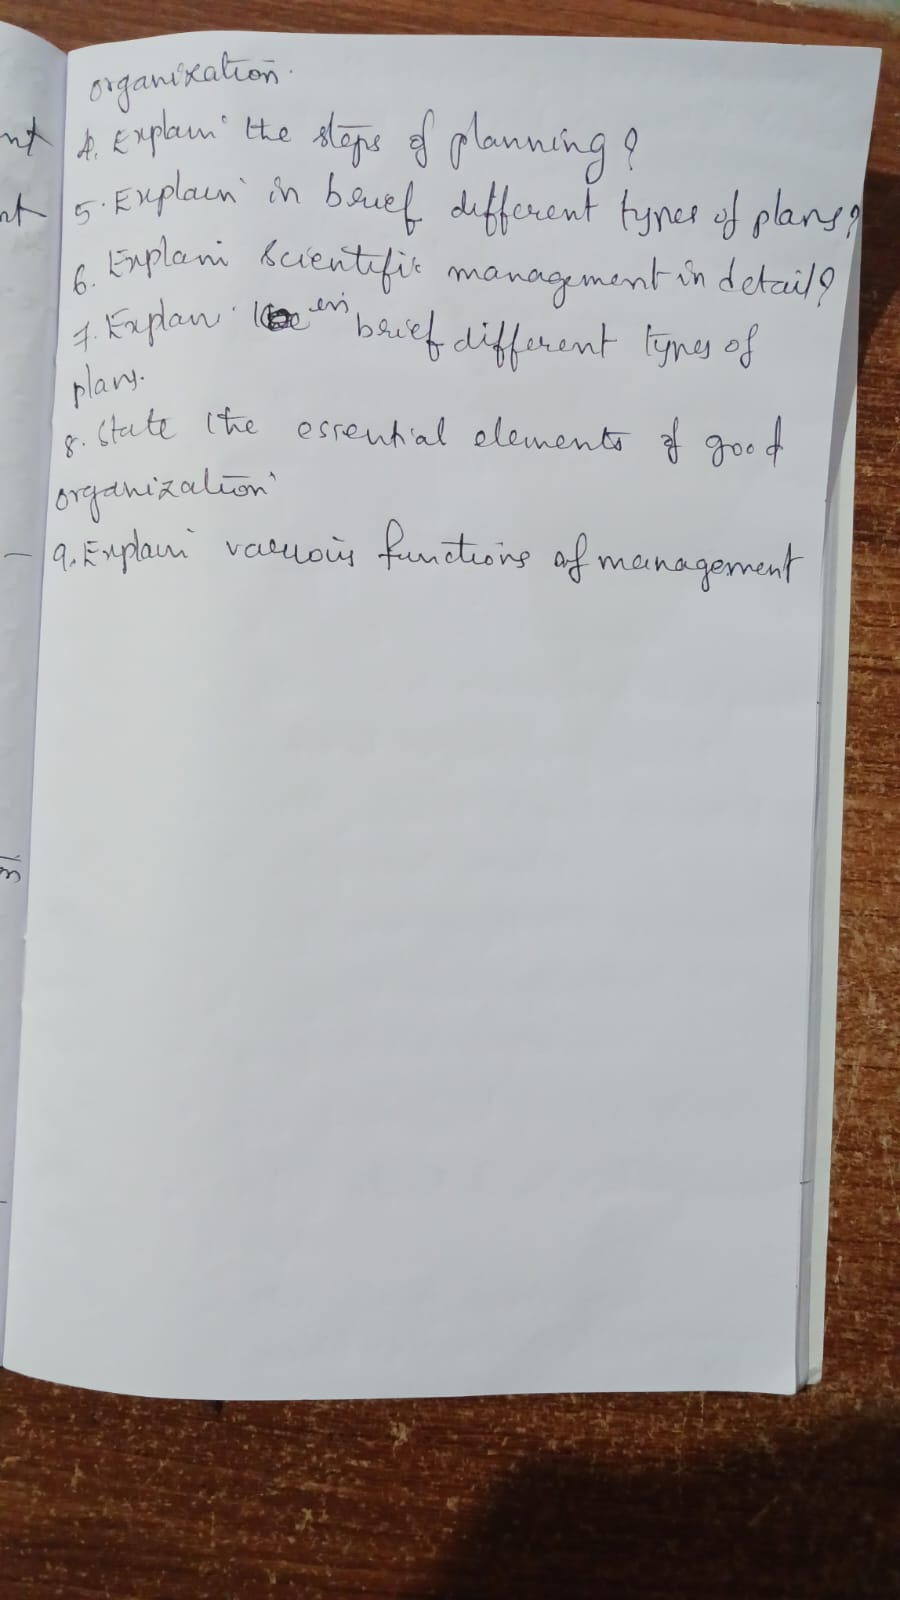 organization.
4. Explain the steps of planning?
5. Explain in brief different types of plans?
6. Explain Scientific management in detail?
7. Explan in brief different types of
plans.
8. State the essential elements of good
organization
9. Explain various functions of management